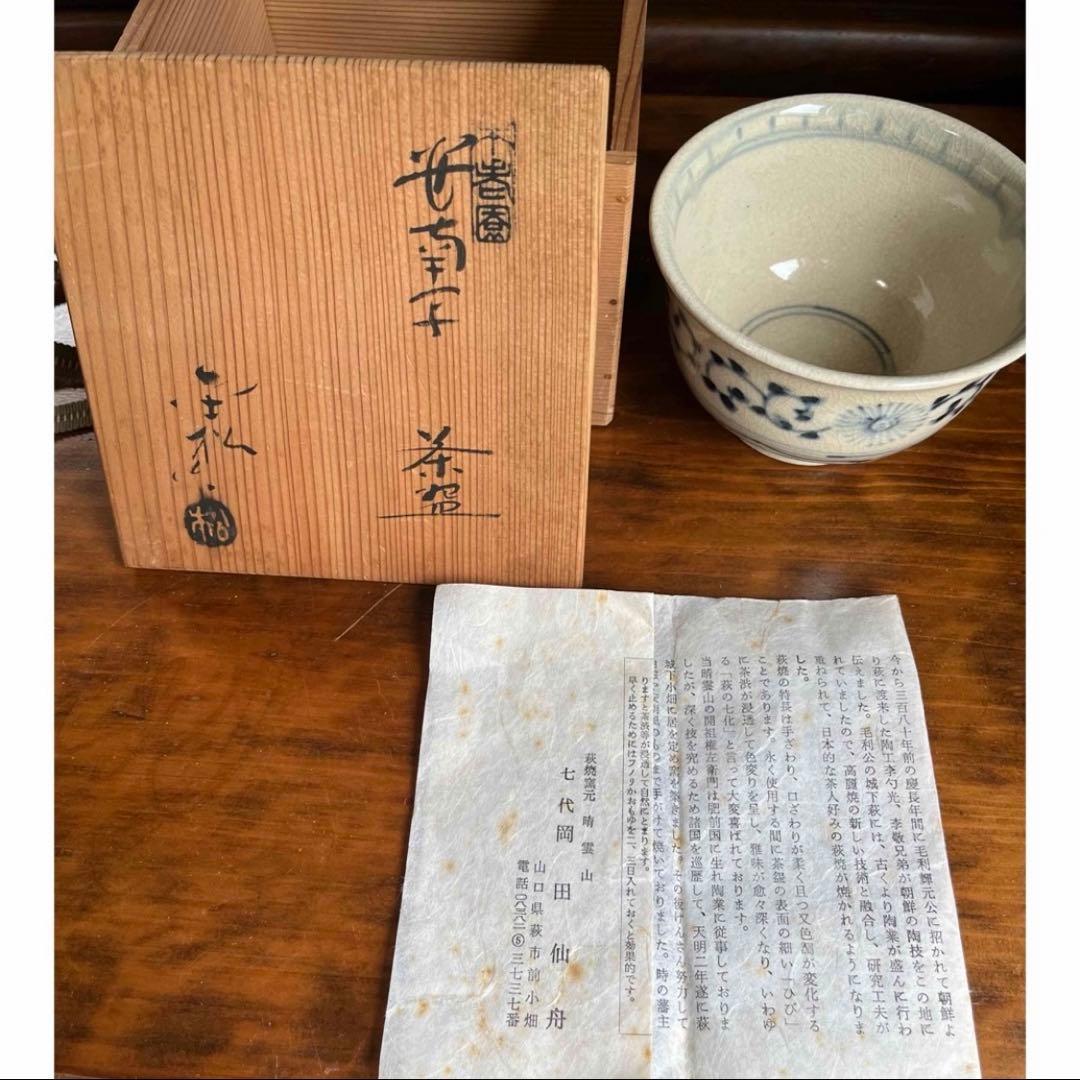 茶盌
松
今から三百八十年前の慶長年間に毛利輝元公に招かれて朝鮮よ
り萩に渡来した陶工李勺光、李敬兄弟が朝鮮の陶技をこの地に
伝えました。毛利公の城下萩には、古くより陶業が盛んに行わ
れていましたので、高麗焼の新しい技術と融合し、研究工夫が
重ねられて、日本的な茶人好みの萩焼が焼かれるようになりま
した。
萩焼の特長は手ざわり、口ざわりが柔く且つ又色面が変化する
ことであります。永く使用する間に茶盌の表面の細い「ひび」
に茶渋が浸透して色変りを呈し、雅味が愈々深くなり、いわゆ
る「萩の七化」と言って大変喜ばれております。
当晴雲山の開祖権左衛門は肥前国に生れ陶業に従事しておりま
したが、深く技を究めるため諸国を巡歴して、天明二年遂に萩
城下小畑に居を定め窯を築きました。その後けんさん努力して
まで手がけて焼いておりました。時の藩主
りますと茶渋等が浸透して自然にとまります。
早く止めるためにはフノリかおもゆを二、三日入れておくと効果的です。
萩焼窯元 晴雲山
七代岡田仙舟
山口県萩市前小畑
電話〇八三八二⑤三七三七番